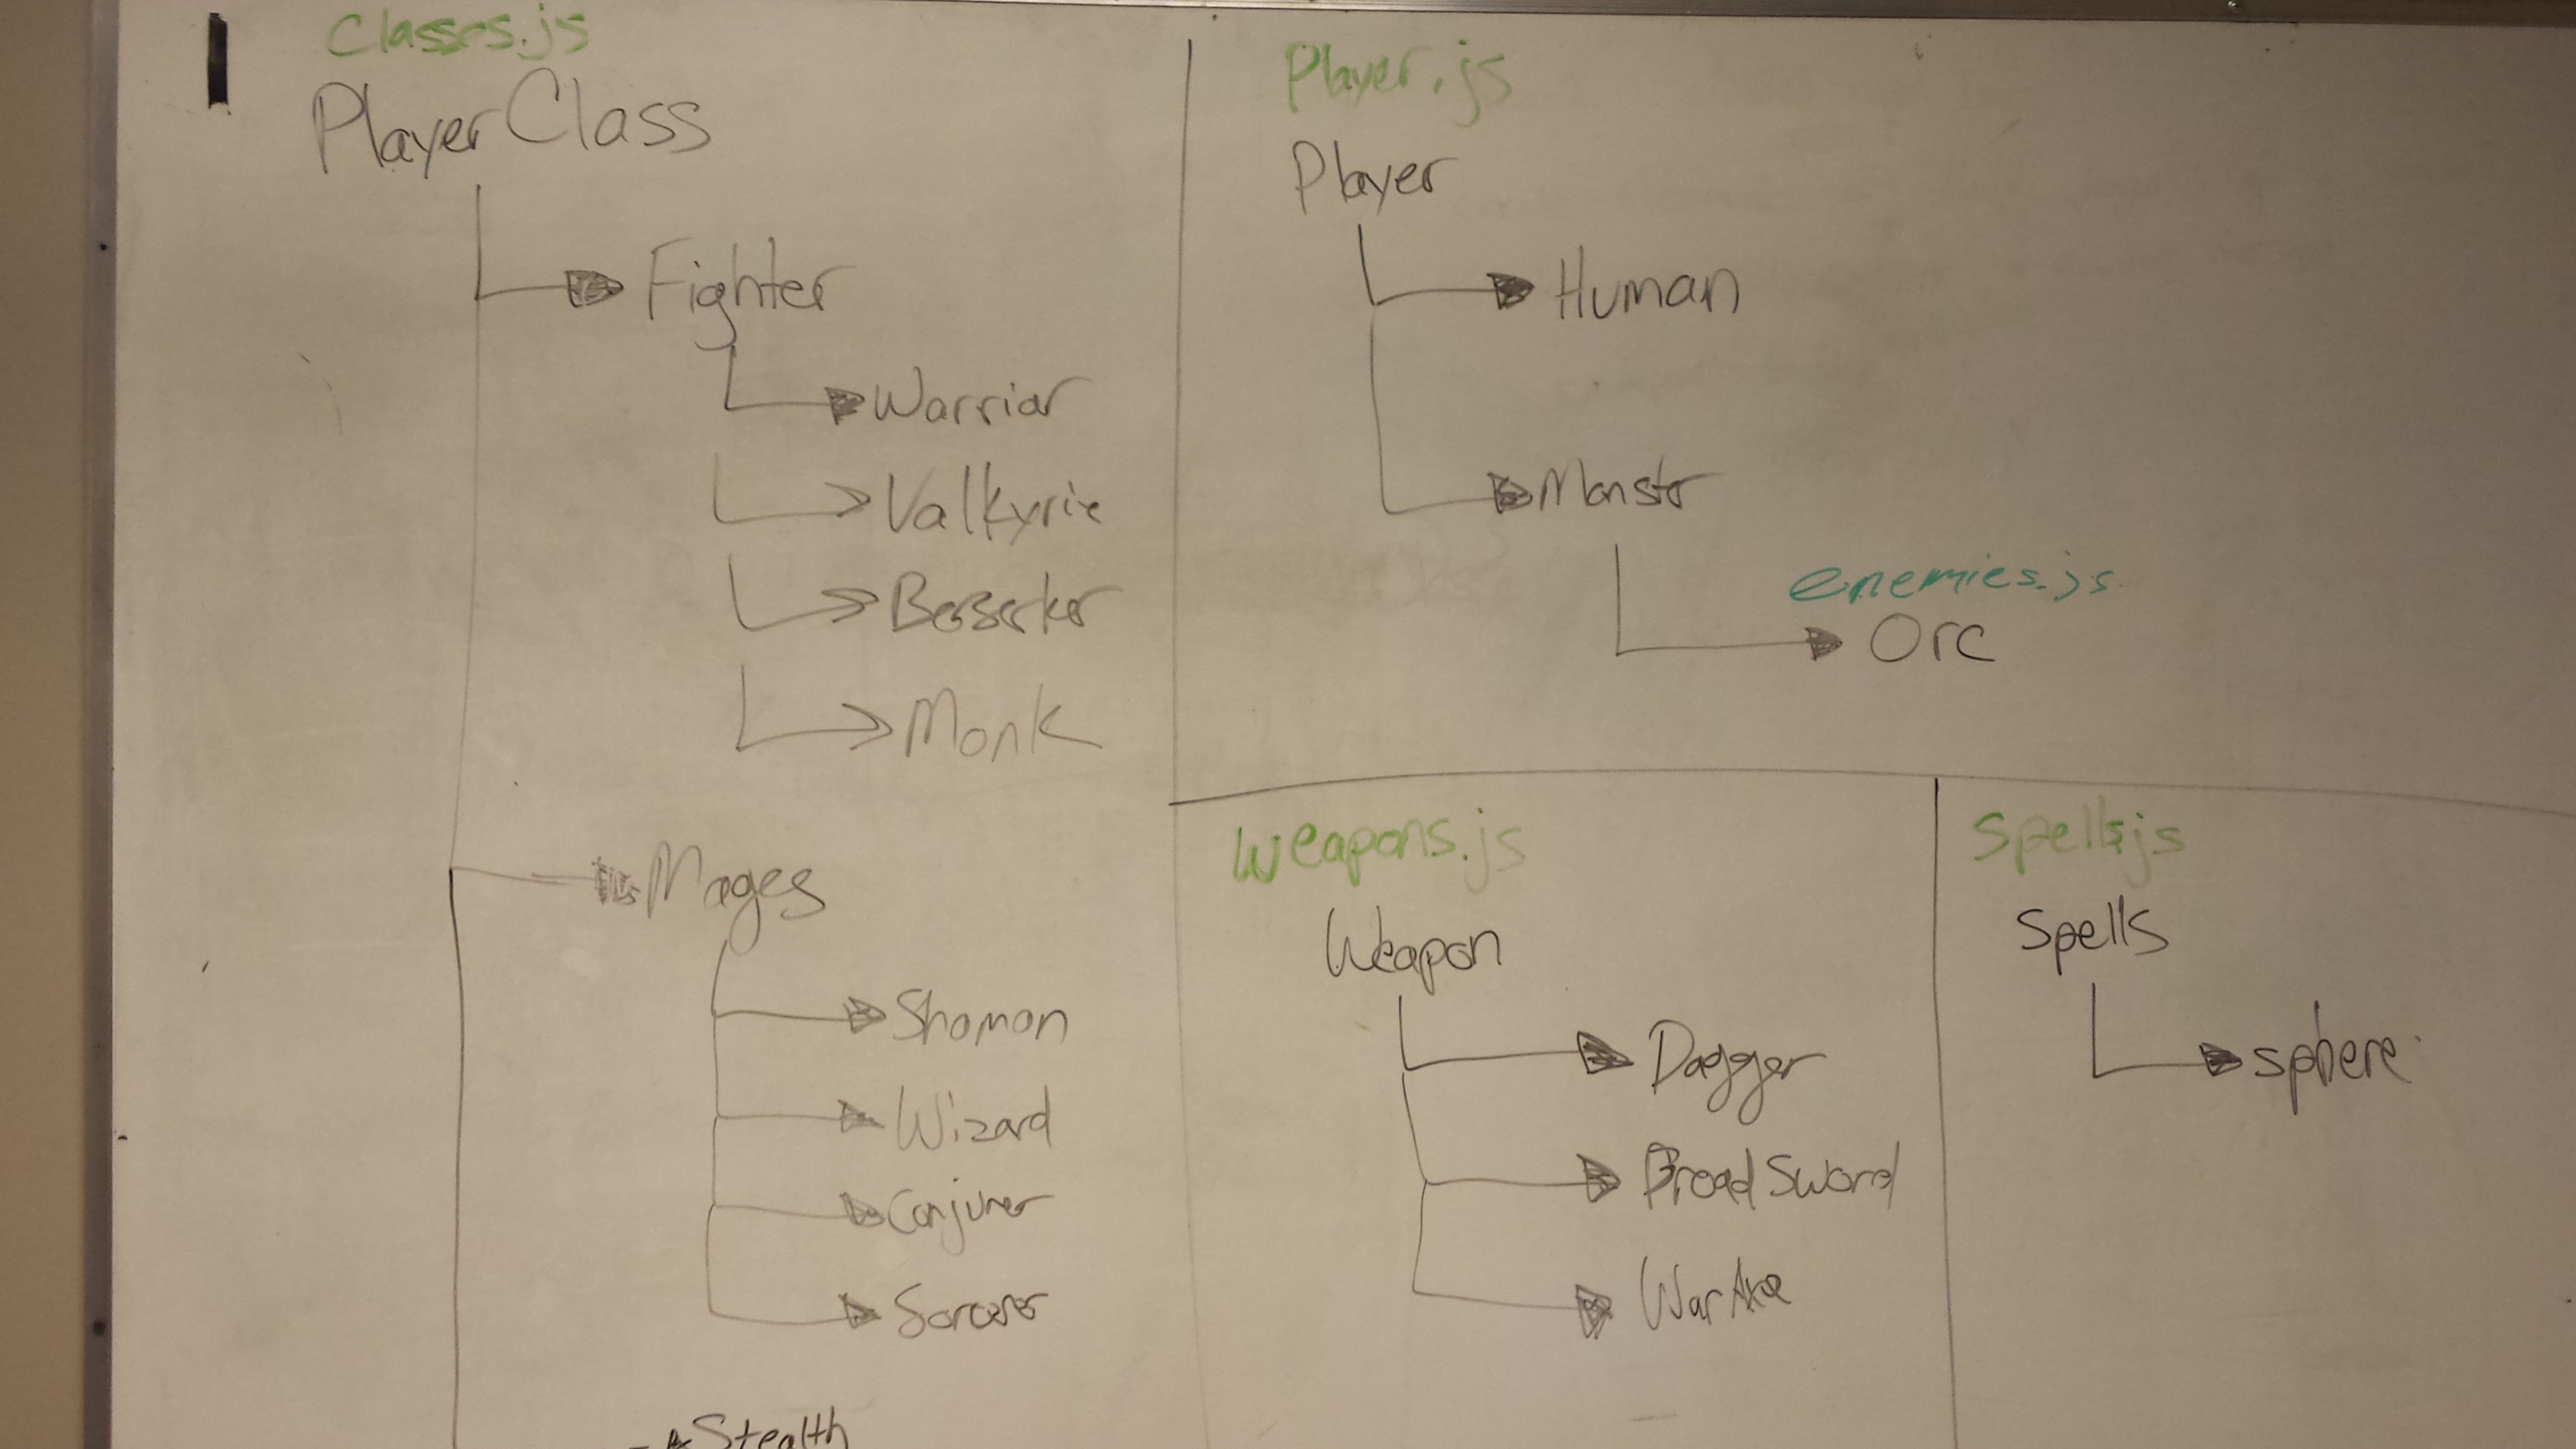 Classes.js
PlayerClass
Fighter
Warrior
Valkyrie
Berserker
Monk
Mages
Shaman
Wizard
Conjurer
Sorcerer
Stealth
Player.js
Player
Human
Monster
enemies.js
Orc
Weapons.js
Weapon
Dagger
BroadSword
WarAxe
Spells.js
Spells
sphere